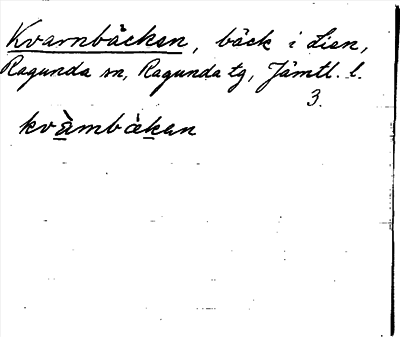 Kvarnbäcken, bäck i Lien,
Ragunda sn, Ragunda tg, Jämtl. l.
3.
kvàmbàkan